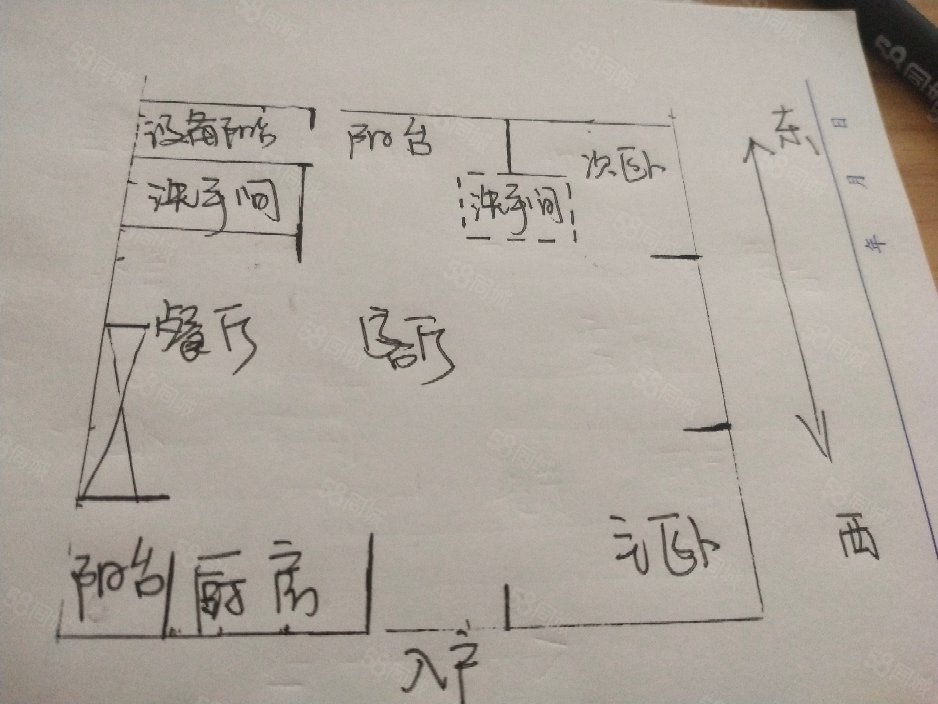 设备阳台
阳台
次卧
洗手间
洗手间
餐厅
客厅
主卧
阳台
厨房
入户
东
西
日
月
年
58同城